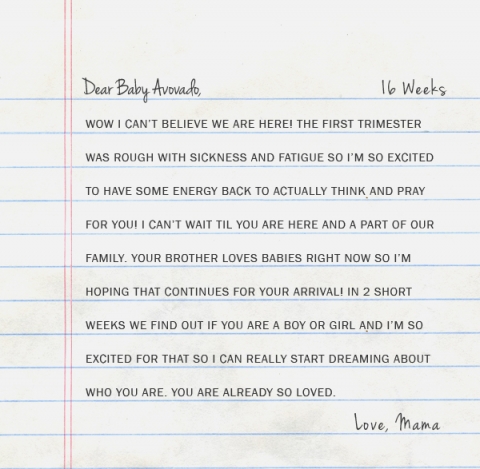 Dear Baby Avovado, 16 Weeks
WOW I CAN'T BELIEVE WE ARE HERE! THE FIRST TRIMESTER
WAS ROUGH WITH SICKNESS AND FATIGUE SO I'M SO EXCITED
TO HAVE SOME ENERGY BACK TO ACTUALLY THINK AND PRAY
FOR YOU! I CAN'T WAIT TIL YOU ARE HERE AND A PART OF OUR
FAMILY. YOUR BROTHER LOVES BABIES RIGHT NOW SO I'M
HOPING THAT CONTINUES FOR YOUR ARRIVAL! IN 2 SHORT
WEEKS WE FIND OUT IF YOU ARE A BOY OR GIRL AND I'M SO
EXCITED FOR THAT SO I CAN REALLY START DREAMING ABOUT
WHO YOU ARE. YOU ARE ALREADY SO LOVED.
Love, Mama